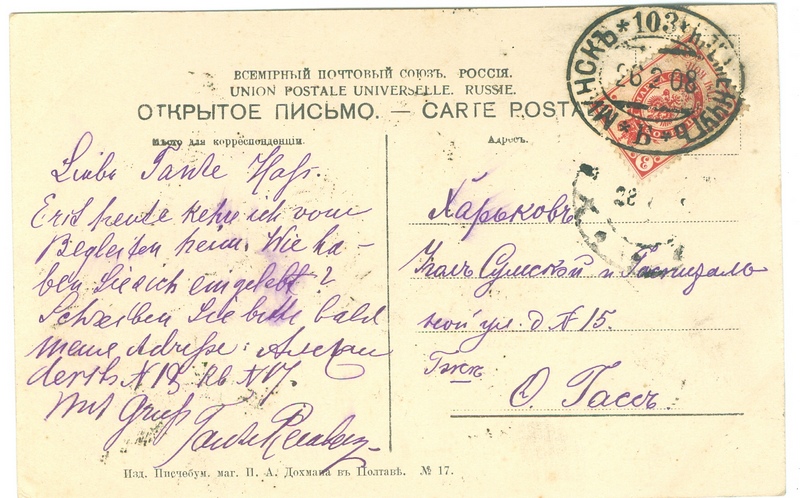 ВСЕМІРНЫЙ ПОЧТОВЫЙ СОЮЗЪ. РОССІЯ.
UNION POSTALE UNIVERSELLE. RUSSIE.
ОТКРЫТОЕ ПИСЬМО. — CARTE POSTA
Мѣсто для корреспонденціи.
Liebe Tante Hass.
Erst heute kehre ich vom
Begleiten heim. Wie ha-
ben Sie sich eingelebt?
Schreiben Sie bitte bald
meine Adresse:
N 19 N 17
Mit Gruß
Адресъ.
Харьковъ
Сумской и Госпиталь
ной ул. д № 15.
О. Гассъ
МИНСКЪ * 103
26 2 08
28
Изд. Писчебум. маг. П. А. Дохмана въ Полтавѣ. № 17.